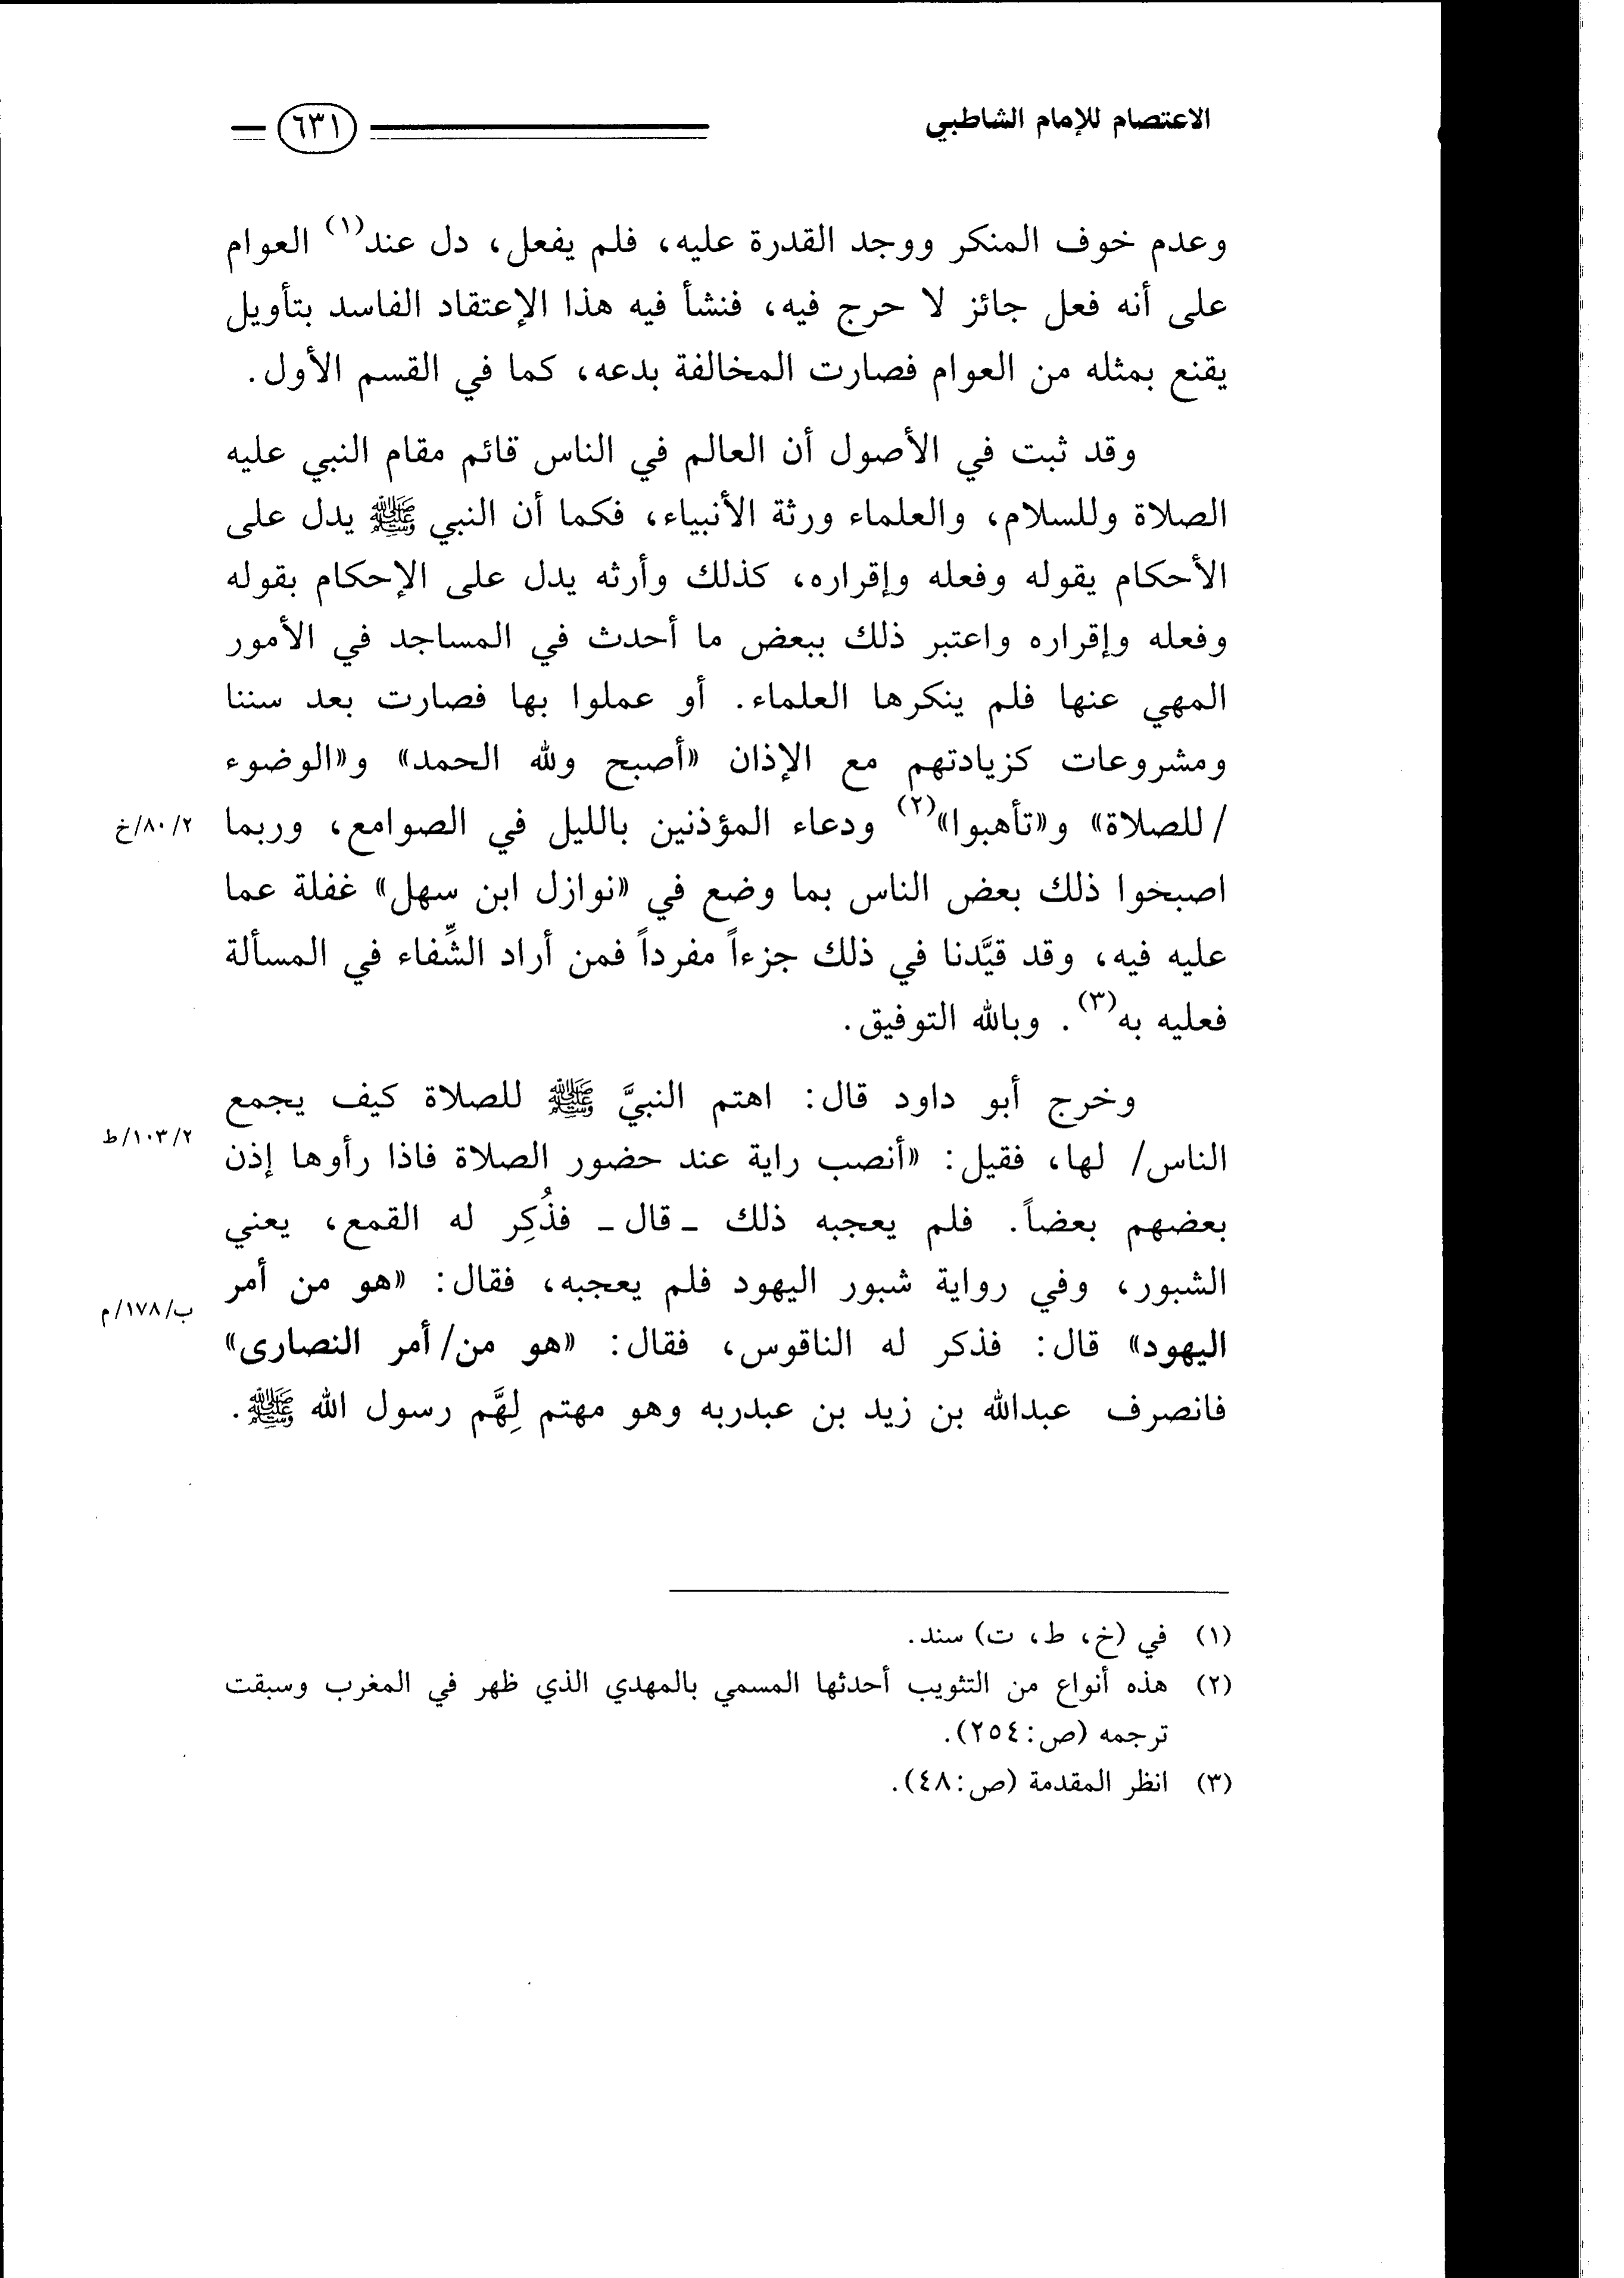 الاعتصام للإمام الشاطبي ٦٣١
وعدم خوف المنكر ووجد القدرة عليه، فلم يفعل، دل عند(١) العوام
على أنه فعل جائز لا حرج فيه، فنشأ فيه هذا الإعتقاد الفاسد بتأويل
يقنع بمثله من العوام فصارت المخالفة بدعه، كما في القسم الأول.
وقد ثبت في الأصول أن العالم في الناس قائم مقام النبي عليه
الصلاة وللسلام، والعلماء ورثة الأنبياء، فكما أن النبي ﷺ يدل على
الأحكام يقوله وفعله وإقراره، كذلك وأرثه يدل على الإحكام بقوله
وفعله وإقراره واعتبر ذلك ببعض ما أحدث في المساجد في الأمور
المهي عنها فلم ينكرها العلماء. أو عملوا بها فصارت بعد سننا
ومشروعات كزيادتهم مع الإذان «أصبح ولله الحمد» و«الوضوء
/للصلاة» و«تأهبوا»(٢) ودعاء المؤذنين بالليل في الصوامع، وربما ٢/٨٠/خ
اصبخوا ذلك بعض الناس بما وضع في «نوازل ابن سهل» غفلة عما
عليه فيه، وقد قيَّدنا في ذلك جزءاً مفرداً فمن أراد الشِّفاء في المسألة
فعليه به(٣). وبالله التوفيق.
وخرج أبو داود قال: اهتم النبيَّ ﷺ للصلاة كيف يجمع
الناس/ لها، فقيل: «أنصب راية عند حضور الصلاة فاذا رأوها إذن ٢/١٠٣/ط
بعضهم بعضاً. فلم يعجبه ذلك ـ قال ـ فذُكِر له القمع، يعني
الشبور، وفي رواية شبور اليهود فلم يعجبه، فقال: «هو من أمر ب/١٧٨/م
اليهود» قال: فذكر له الناقوس، فقال: «هو من/ أمر النصارى»
فانصرف عبدالله بن زيد بن عبدربه وهو مهتم لِهَّم رسول الله ﷺ.
(١) في (خ، ط، ت) سند.
(٢) هذه أنواع من التثويب أحدثها المسمي بالمهدي الذي ظهر في المغرب وسبقت
ترجمه (ص: ٢٥٤).
(٣) انظر المقدمة (ص: ٤٨).